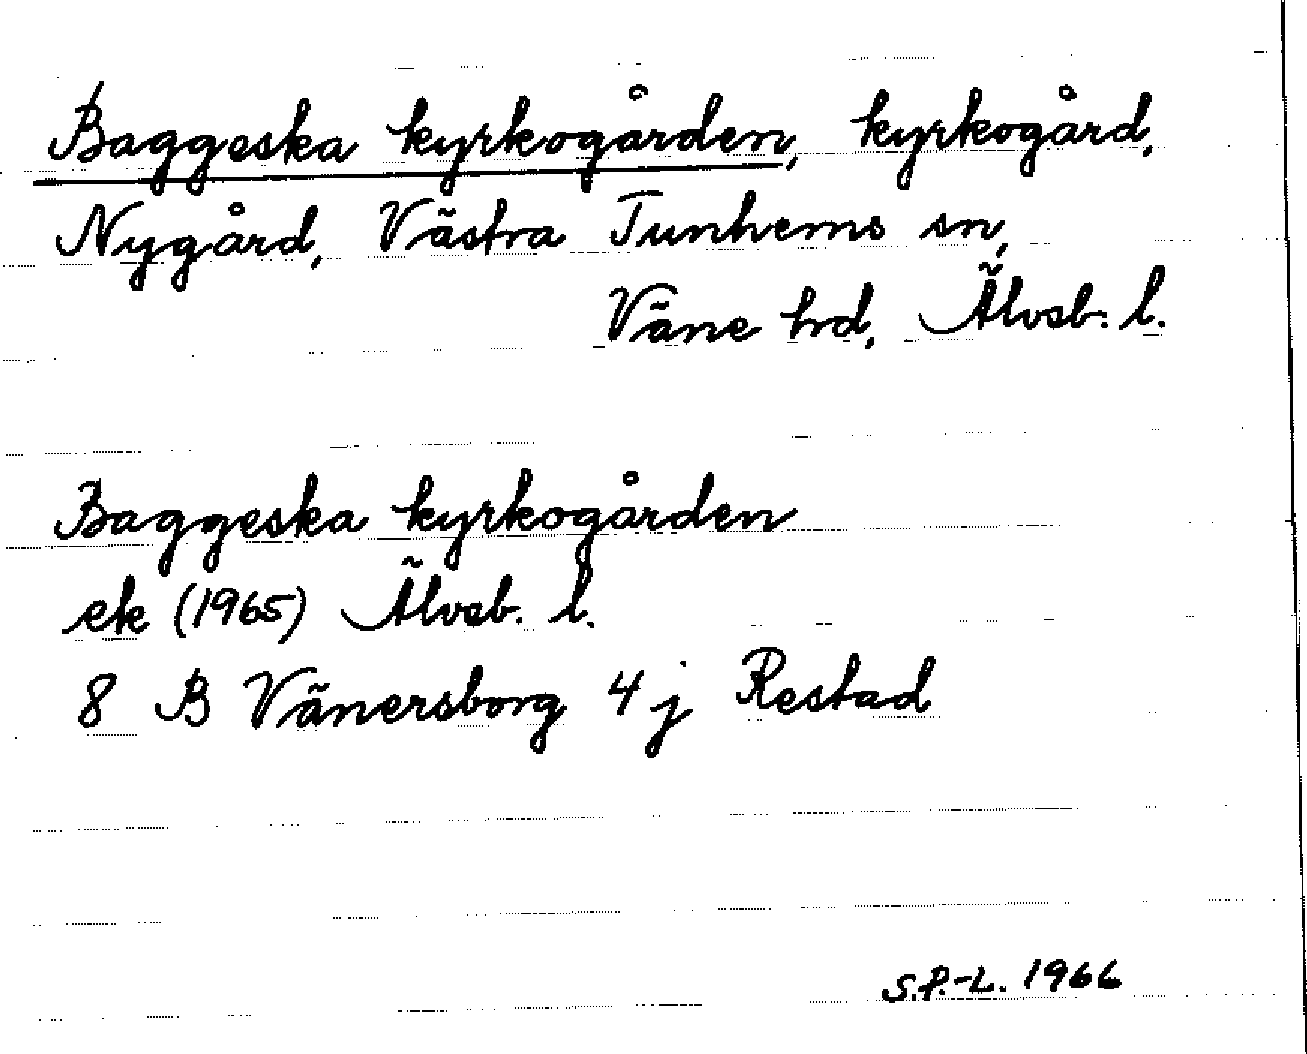 Baggeska kyrkogården, kyrkogård,
Nygård, Västra Tunhems sn,
Väne hrd, Älvsb. l.
Baggeska kyrkogården
ek (1965) Älvsb. l.
8 B Vänersborg 4 j Restad
S.P.-L. 1966